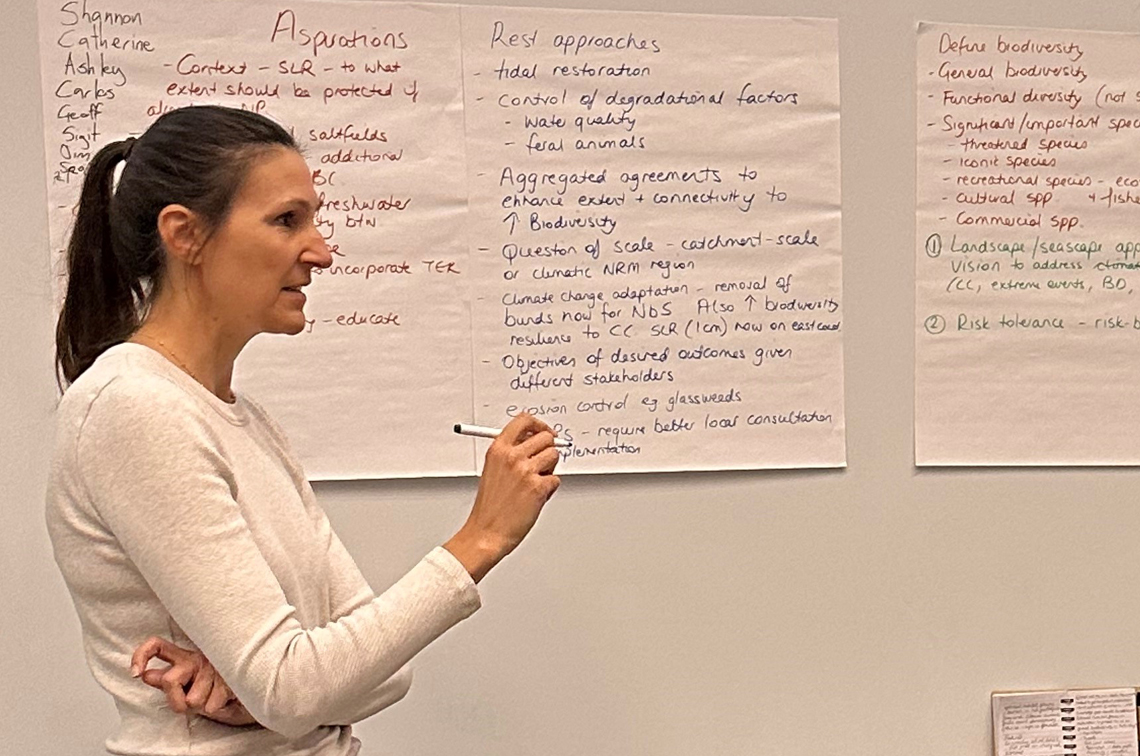 Shannon
Catherine
Ashley
Carlos
Geoff
Sigit
Aspirations
- Context - SLR - to what
extent should be protected if
saltfields
- additional
BC
freshwater
btn
incorporate TER
- educate
Rest approaches
- tidal restoration
- control of degradational factors
- water quality
- feral animals
- Aggregated agreements to
enhance extent + connectivity to
↑ Biodiversity
- Question of scale - catchment-scale
or climatic NRM region
- Climate change adaptation - removal of
bunds now for NbS Also ↑ biodiversity
resilience to CC. SLR (1cm) now on east coast
- Objectives of desired outcomes given
different stakeholders
- erosion control eg glassweeds
- require better local consultation
Define biodiversity
- General biodiversity
- Functional diversity (not
- Significant/important
- threatened species
- iconic species
- recreational species -
- cultural spp +
- Commercial spp.
① Landscape/seascape
Vision to address
(CC, extreme events, BD,
② Risk tolerance -